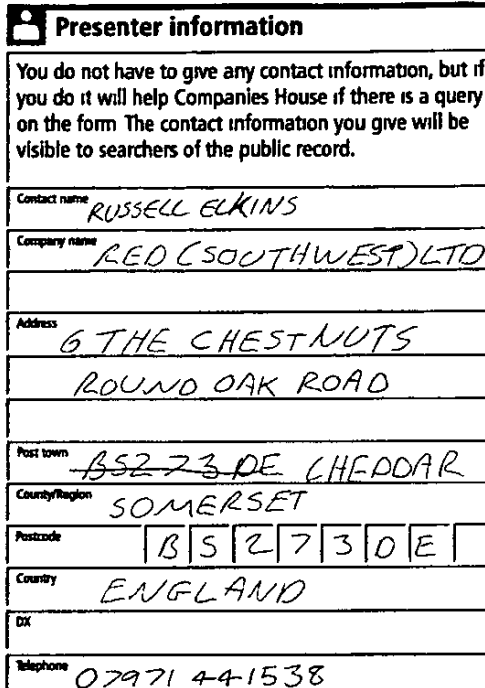 Presenter information
You do not have to give any contact information, but if
you do it will help Companies House if there is a query
on the form The contact information you give will be
visible to searchers of the public record.
Contact name RUSSELL ELKINS
Company name RED (SOUTHWEST) LTD
Address 6 THE CHESTNUTS
ROUND OAK ROAD
Post town BS27 3DE CHEDDAR
County/Region SOMERSET
Postcode BS27 3DE
Country ENGLAND
DX
Telephone 07971 441538